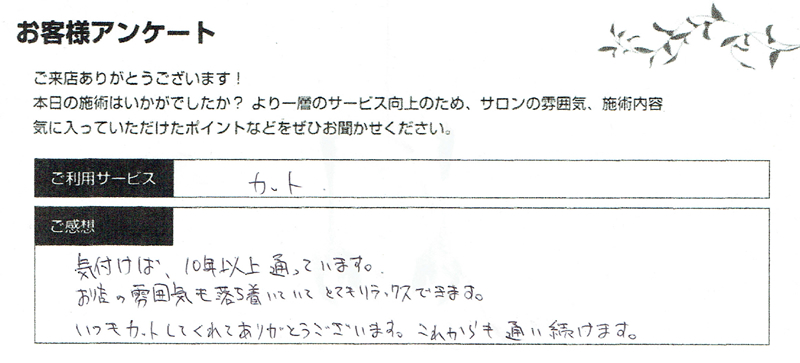 お客様アンケート
ご来店ありがとうございます！
本日の施術はいかがでしたか？ より一層のサービス向上のため、サロンの雰囲気、施術内容
気に入っていただけたポイントなどをぜひお聞かせください。
ご利用サービス カット.
ご感想
気付けば、10年以上通っています。
お店の雰囲気も落ち着いていてとてもリラックスできます。
いつもカットしてくれてありがとうございます。これからも通い続けます。